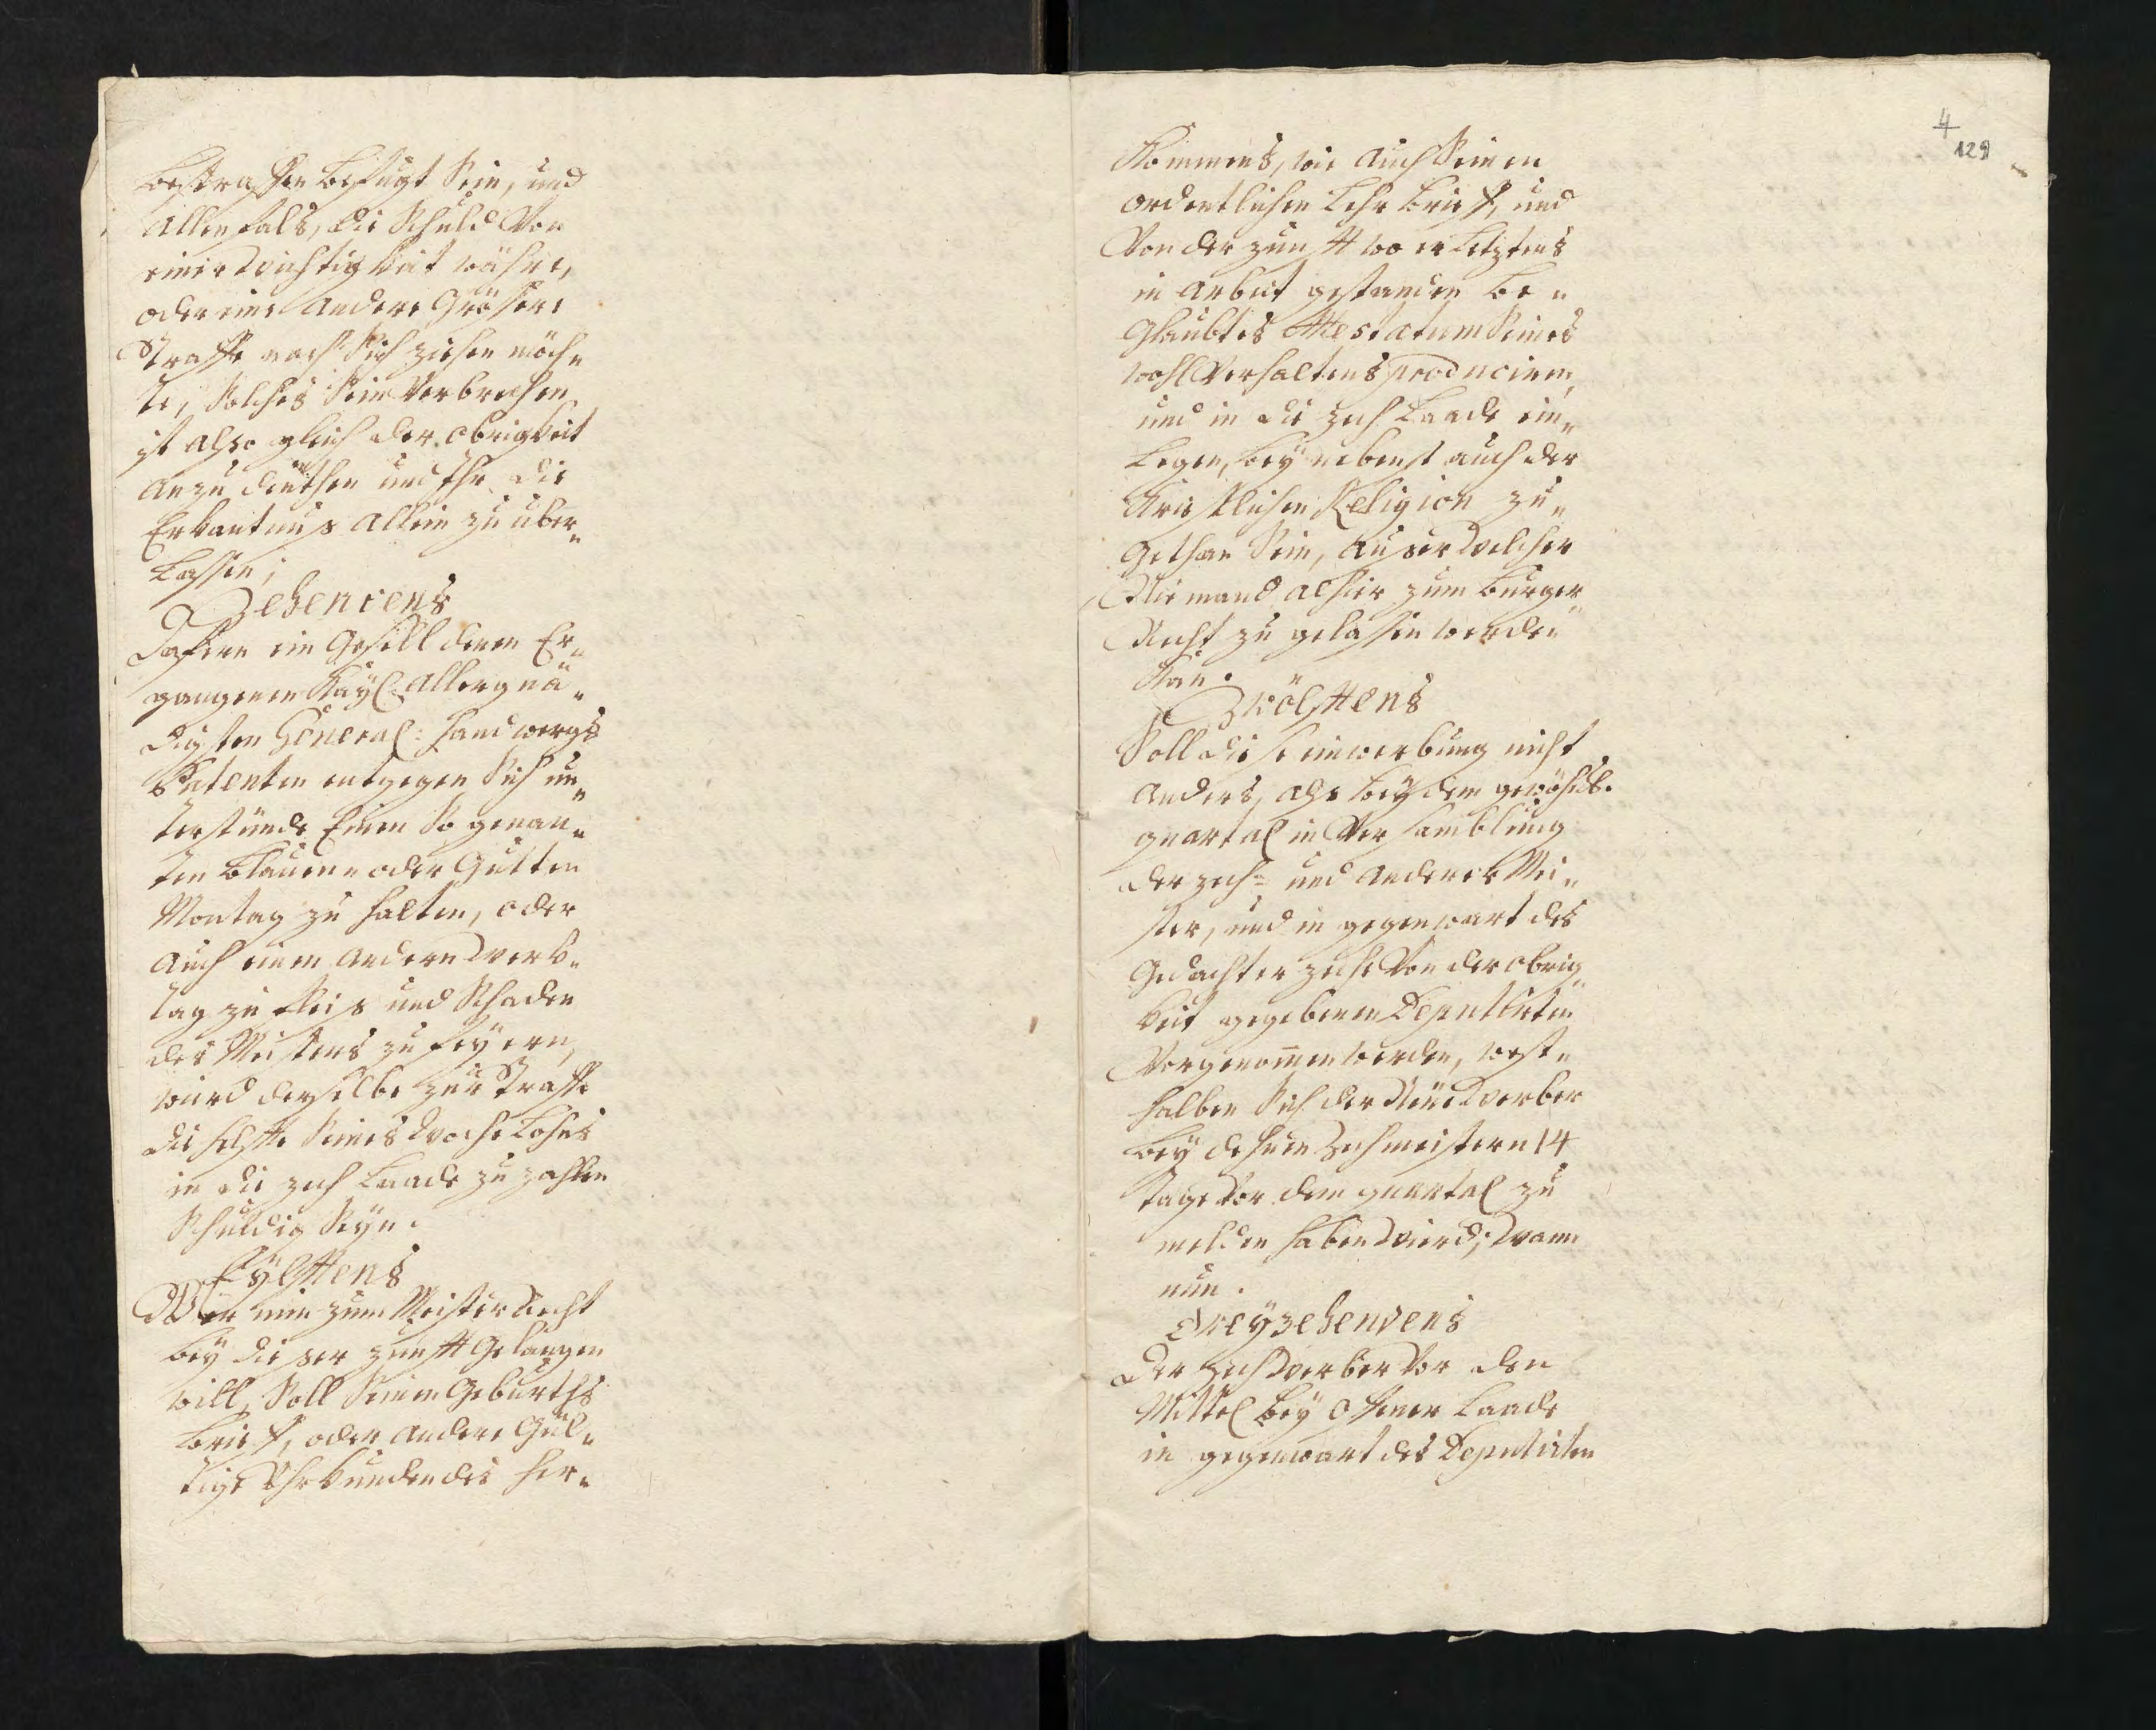 bestraffen befugt sein, und
allenfals, die Schuld von
einer Wichtigkeit währe,
oder eine andere Grösere
Straffe nach sich ziehen möch„
te, solches sein Verbrechen
ist also gleich der obrigkeit
anzudeuthen und Ihr die
Erkantnus allein zu über„
lassen;
Zehentens
Dafern ein Gesell denen Er„
gangenen Kayl: Allergnä„
digsten General: Handwergs
Patenten entgegen sich un„
terstünde Einen so genan„
ten Blauen- oder Gutten
Montag zu halten, oder
auch einen andern Werk„
tag zu fleis und Schaden
des Meisters zu feyern,
wird derselbe zur Straffe
die helfte seines Woche Lohns
in die zech Laade zu zahlen
Schuldig seyn.
Eylftens
Wer nun zum Meister Recht
bey dieser zunfft Gelangen
will, soll seinen Geburths
brieff, oder andere Gül„
tige Uhrkunden des her„
4
129
Kommens, wie auch seinen
ordentlichen Lehr brieff, und
Von der zunfft wo er Letztens
in arbeit gestanden be„
Glaubtes Attestatum seines
wohl Verhaltens produciren,
und in die zech Laade ein„
Legen, beynebenst auch der
Kristlichen Religion zu„
Gethan sein, auser welcher
Niemand alhier zum burger
Recht zu gelassen werden
Kan.
Zwölfftens
Soll diese einwerbung nicht
anders, als bey dem gewöhnl.
quartal in Versamblung
der zech- und anderer Mei„
ster, und in gegenwart des
Gedachter zeche Von der obrig
keit gegebenen Deputirten
Vorgenommen werden, west„
halben sich der Neue Werber
bey dehnen Zechmeistern 14
tage vor dem quartal zu
melden haben wierd; Wann
nun.
Dreyzehendens
Der zech Werber Vor den
Mittel bey offener Laade
in gegenwart des Deputirten